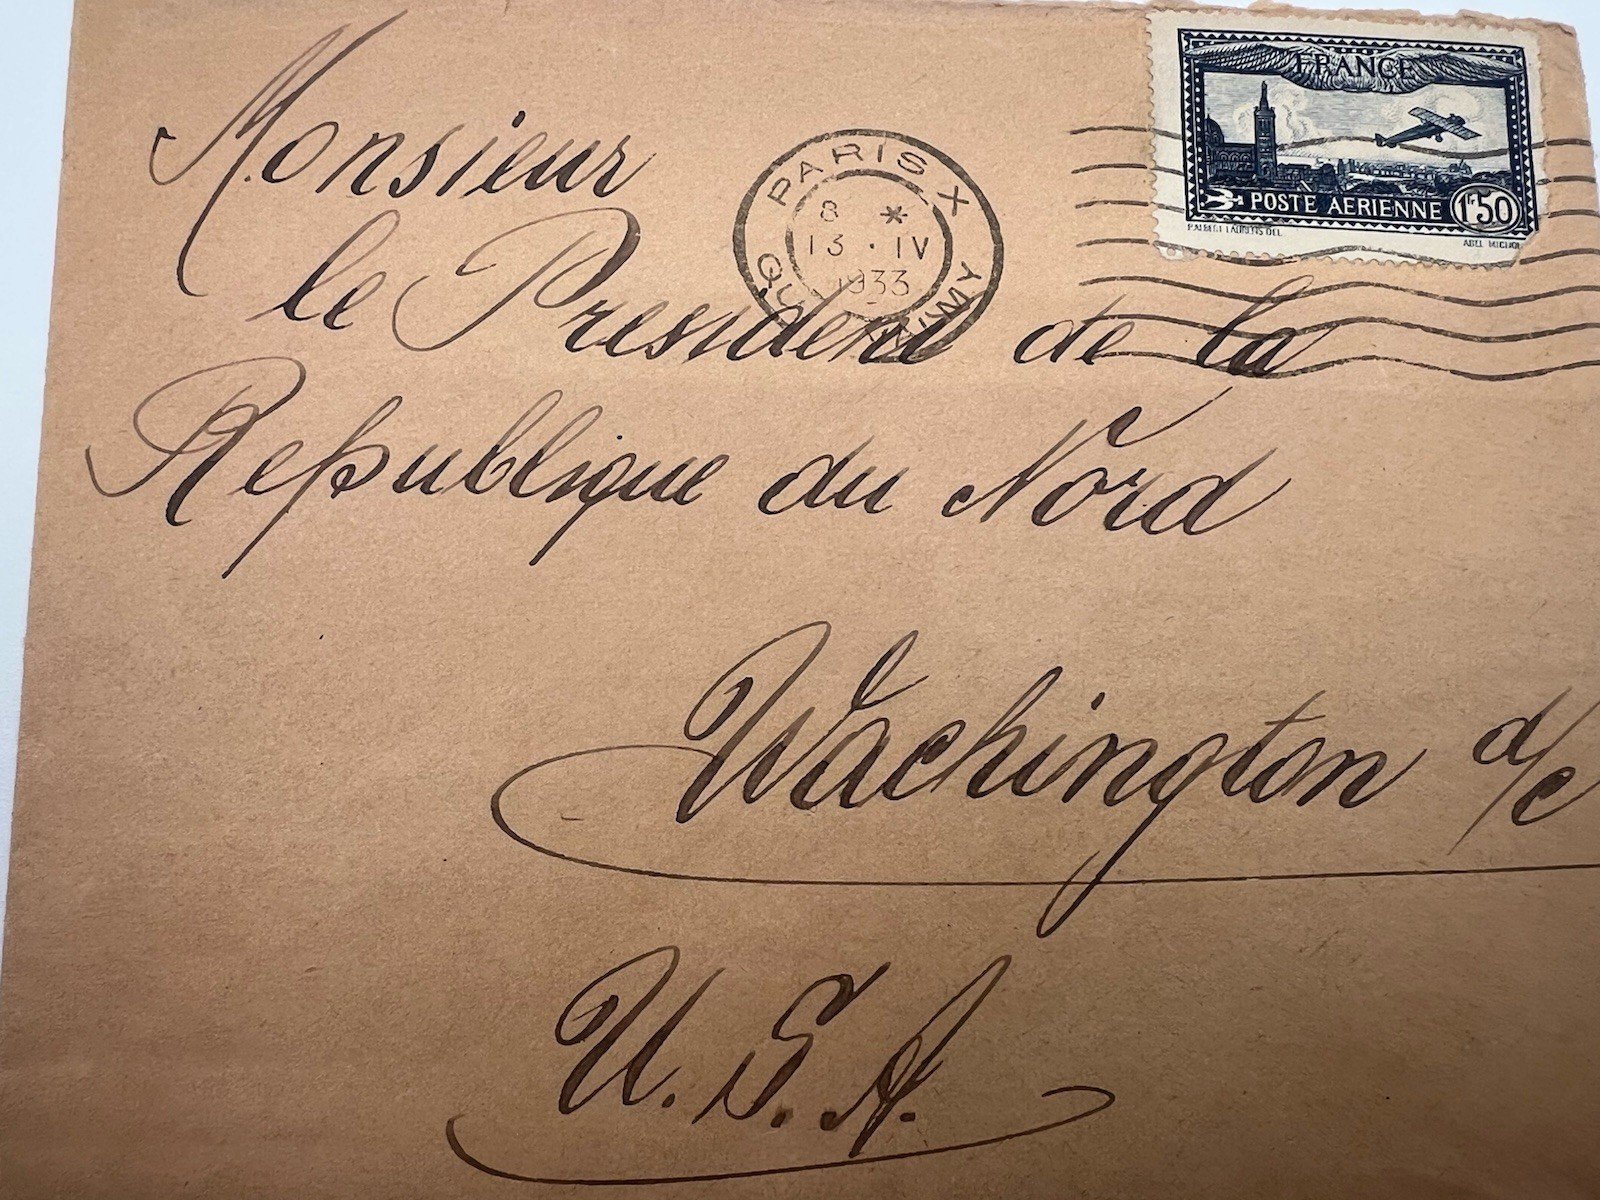 FRANCE
POSTE AERIENNE 1F50
P. ALBERT LAURENS DEL.
ABEL
PARIS X
8 *
13 · IV
1933
Monsieur
le President de la
Republique du Nord
Wachington d/c
U.S.A.